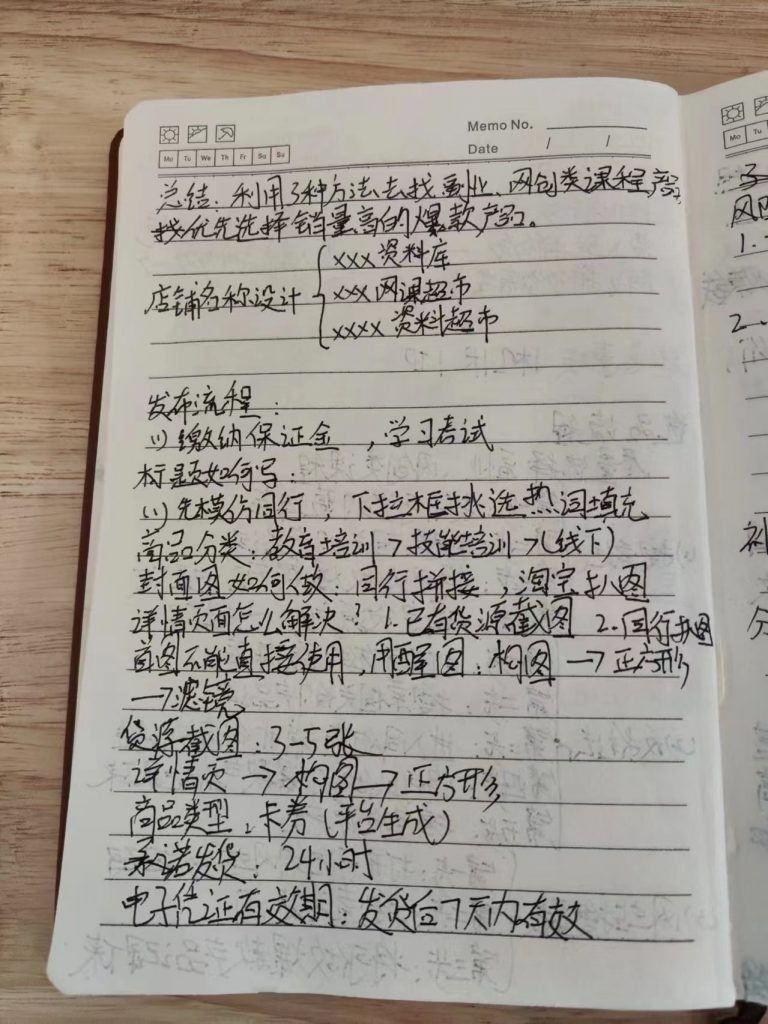 Memo No.
Date / /
Mo Tu We Th Fr Sa Su
总结:利用3种方法去找副业、网创类课程,产品
找优先选择销量高的爆款产品。
店铺名称设计
xxx资料库
xxx网课超市
xxxx资料超市
发布流程:
(1)缴纳保证金,学习考试
标题如何写:
(1)先模仿同行,下拉框挑选热词填充
商品分类:教育培训>技能培训>(线下)
封面图如何做:同行拼接,淘宝扒图
详情页面怎么解决?1.已有货源截图 2.同行扒图
首图不能直接使用,用醒图:构图→正方形
→滤镜
货源截图:3-5张
详情页→构图→正方形
商品类型:卡券(平台生成)
承诺发货:24小时
电子凭证有效期:发货后7天内有效
Mo Tu
1.
2.
补
分